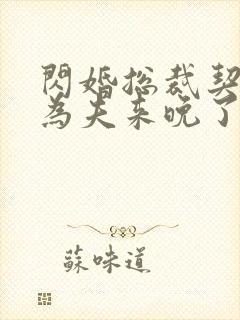 閃婚總裁契
為夫來晚了
蘇味道